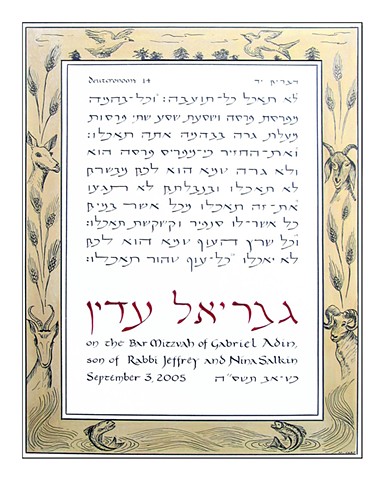 Deuteronomy 14 דברים יד
לא תאכל כל־תועבה: וכל־בהמה
מפרסת פרסה ושסעת שסע שתי פרסות
מעלת גרה בבהמה אתה תאכלו:
ואת־החזיר כי־מפריס פרסה הוא
ולא גרה טמא הוא לכם מבשרם
לא תאכלו ובנבלתם לא תגעו
את־זה תאכלו מכל אשר במים
כל אשר־לו סנפיר וקשקשת תאכלו:
וכל שרץ העוף טמא הוא לכם
לא יאכלו כל־עוף טהור תאכלו:
גבריאל עדין
on the Bar Mitzvah of Gabriel Adin,
son of Rabbi Jeffrey and Nina Salkin
September 3, 2005 כט׳ אב תשס״ה